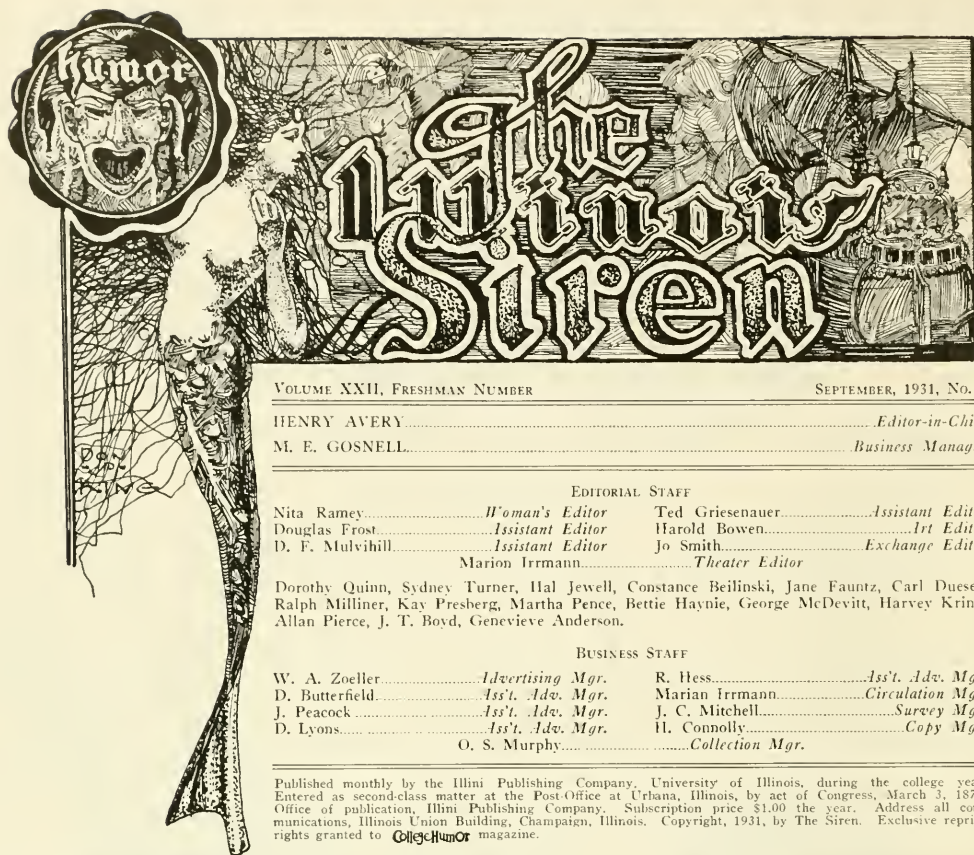 Humor
The
Illinois
Siren
DON
KING
VOLUME XXII, FRESHMAN NUMBER SEPTEMBER, 1931, NO.
HENRY AVERY Editor-in-Chi
M. E. GOSNELL Business Manag
EDITORIAL STAFF
Nita Ramey Woman's Editor Ted Griesenauer Assistant Edit
Douglas Frost Assistant Editor Harold Bowen Art Edit
D. F. Mulvihill Assistant Editor Jo Smith Exchange Edit
Marion Irrmann Theater Editor
Dorothy Quinn, Sydney Turner, Hal Jewell, Constance Beilinski, Jane Fauntz, Carl Duese
Ralph Milliner, Kay Presberg, Martha Pence, Bettie Haynie, George McDevitt, Harvey Krin
Allan Pierce, J. T. Boyd, Genevieve Anderson.
BUSINESS STAFF
W. A. Zoeller Advertising Mgr. R. Hess Ass't. Adv. Mg
D. Butterfield Ass't. Adv. Mgr. Marian Irrmann Circulation Mg
J. Peacock Ass't. Adv. Mgr. J. C. Mitchell Survey Mg
D. Lyons Ass't. Adv. Mgr. H. Connolly Copy Mg
O. S. Murphy Collection Mgr.
Published monthly by the Illini Publishing Company, University of Illinois, during the college yea
Entered as second-class matter at the Post-Office at Urbana, Illinois, by act of Congress, March 3, 187
Office of publication, Illini Publishing Company. Subscription price $1.00 the year. Address all com
munications, Illinois Union Building, Champaign, Illinois. Copyright, 1931, by The Siren. Exclusive repri
rights granted to CollegeHumor magazine.